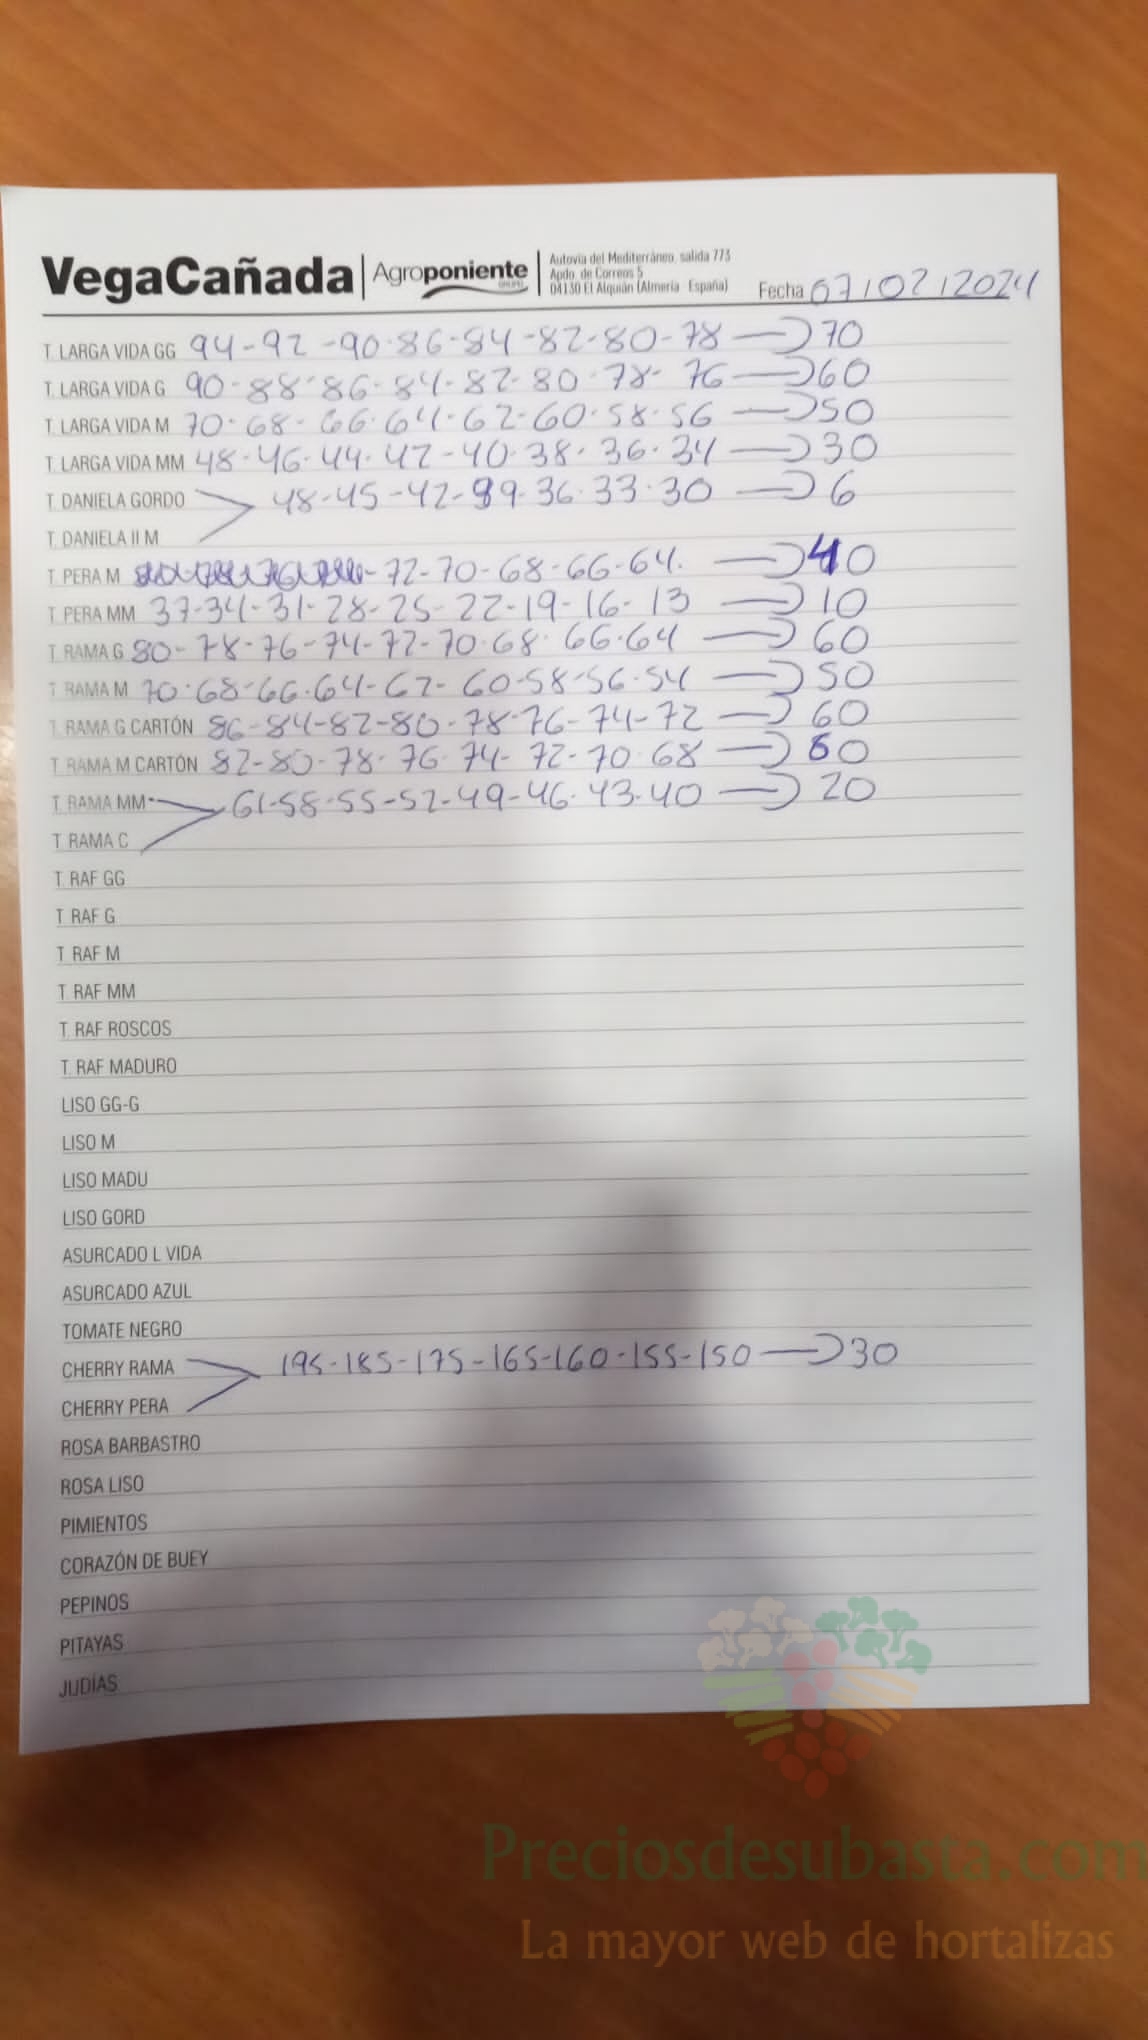 VegaCañada Agroponiente GRUPO
Autovía del Mediterráneo, salida 773
Apdo. de Correos 5
04130 El Alquián (Almería España)
Fecha 07/02/2024
T. LARGA VIDA GG 94-92-90-86-84-82-80-78 70
T. LARGA VIDA G 90-88-86-84-82-80-78-76 60
T. LARGA VIDA M 70-68-66-64-62-60-58-56 50
T. LARGA VIDA MM 48-46-44-42-40-38-36-34 30
T. DANIELA GORDO 48-45-42-39-36-33-30 6
T. DANIELA II M
T. PERA M -72-70-68-66-64. 40
T. PERA MM 37-34-31-28-25-22-19-16-13 10
T. RAMA G 80-78-76-74-72-70-68-66-64 60
T. RAMA M 70-68-66-64-62-60-58-56-54 50
T. RAMA G CARTÓN 86-84-82-80-78-76-74-72 60
T. RAMA M CARTÓN 82-80-78-76-74-72-70-68 60
T. RAMA MM 61-58-55-52-49-46-43-40 20
T. RAMA C
T. RAF GG
T. RAF G
T. RAF M
T. RAF MM
T. RAF ROSCOS
T. RAF MADURO
LISO GG-G
LISO M
LISO MADU
LISO GORD
ASURCADO L VIDA
ASURCADO AZUL
TOMATE NEGRO
CHERRY RAMA 195-185-175-165-160-155-150 30
CHERRY PERA
ROSA BARBASTRO
ROSA LISO
PIMIENTOS
CORAZÓN DE BUEY
PEPINOS
PITAYAS
JUDÍAS
Preciosdesubasta.com
La mayor web de hortalizas